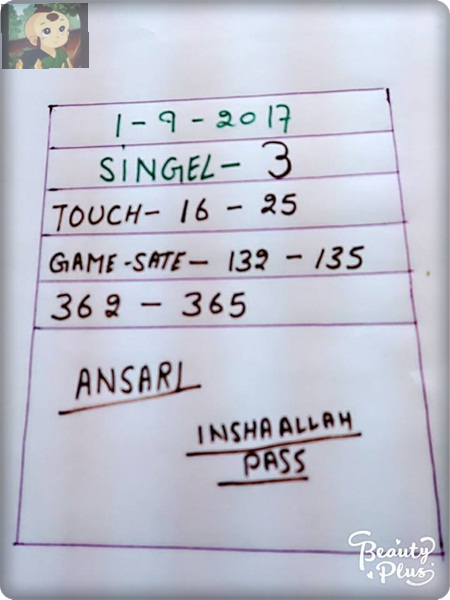 1-9-2017
SINGEL- 3
TOUCH- 16 - 25
GAME-SATE- 132 - 135
362 - 365
ANSARI
INSHAALLAH
PASS
Beauty
Plus